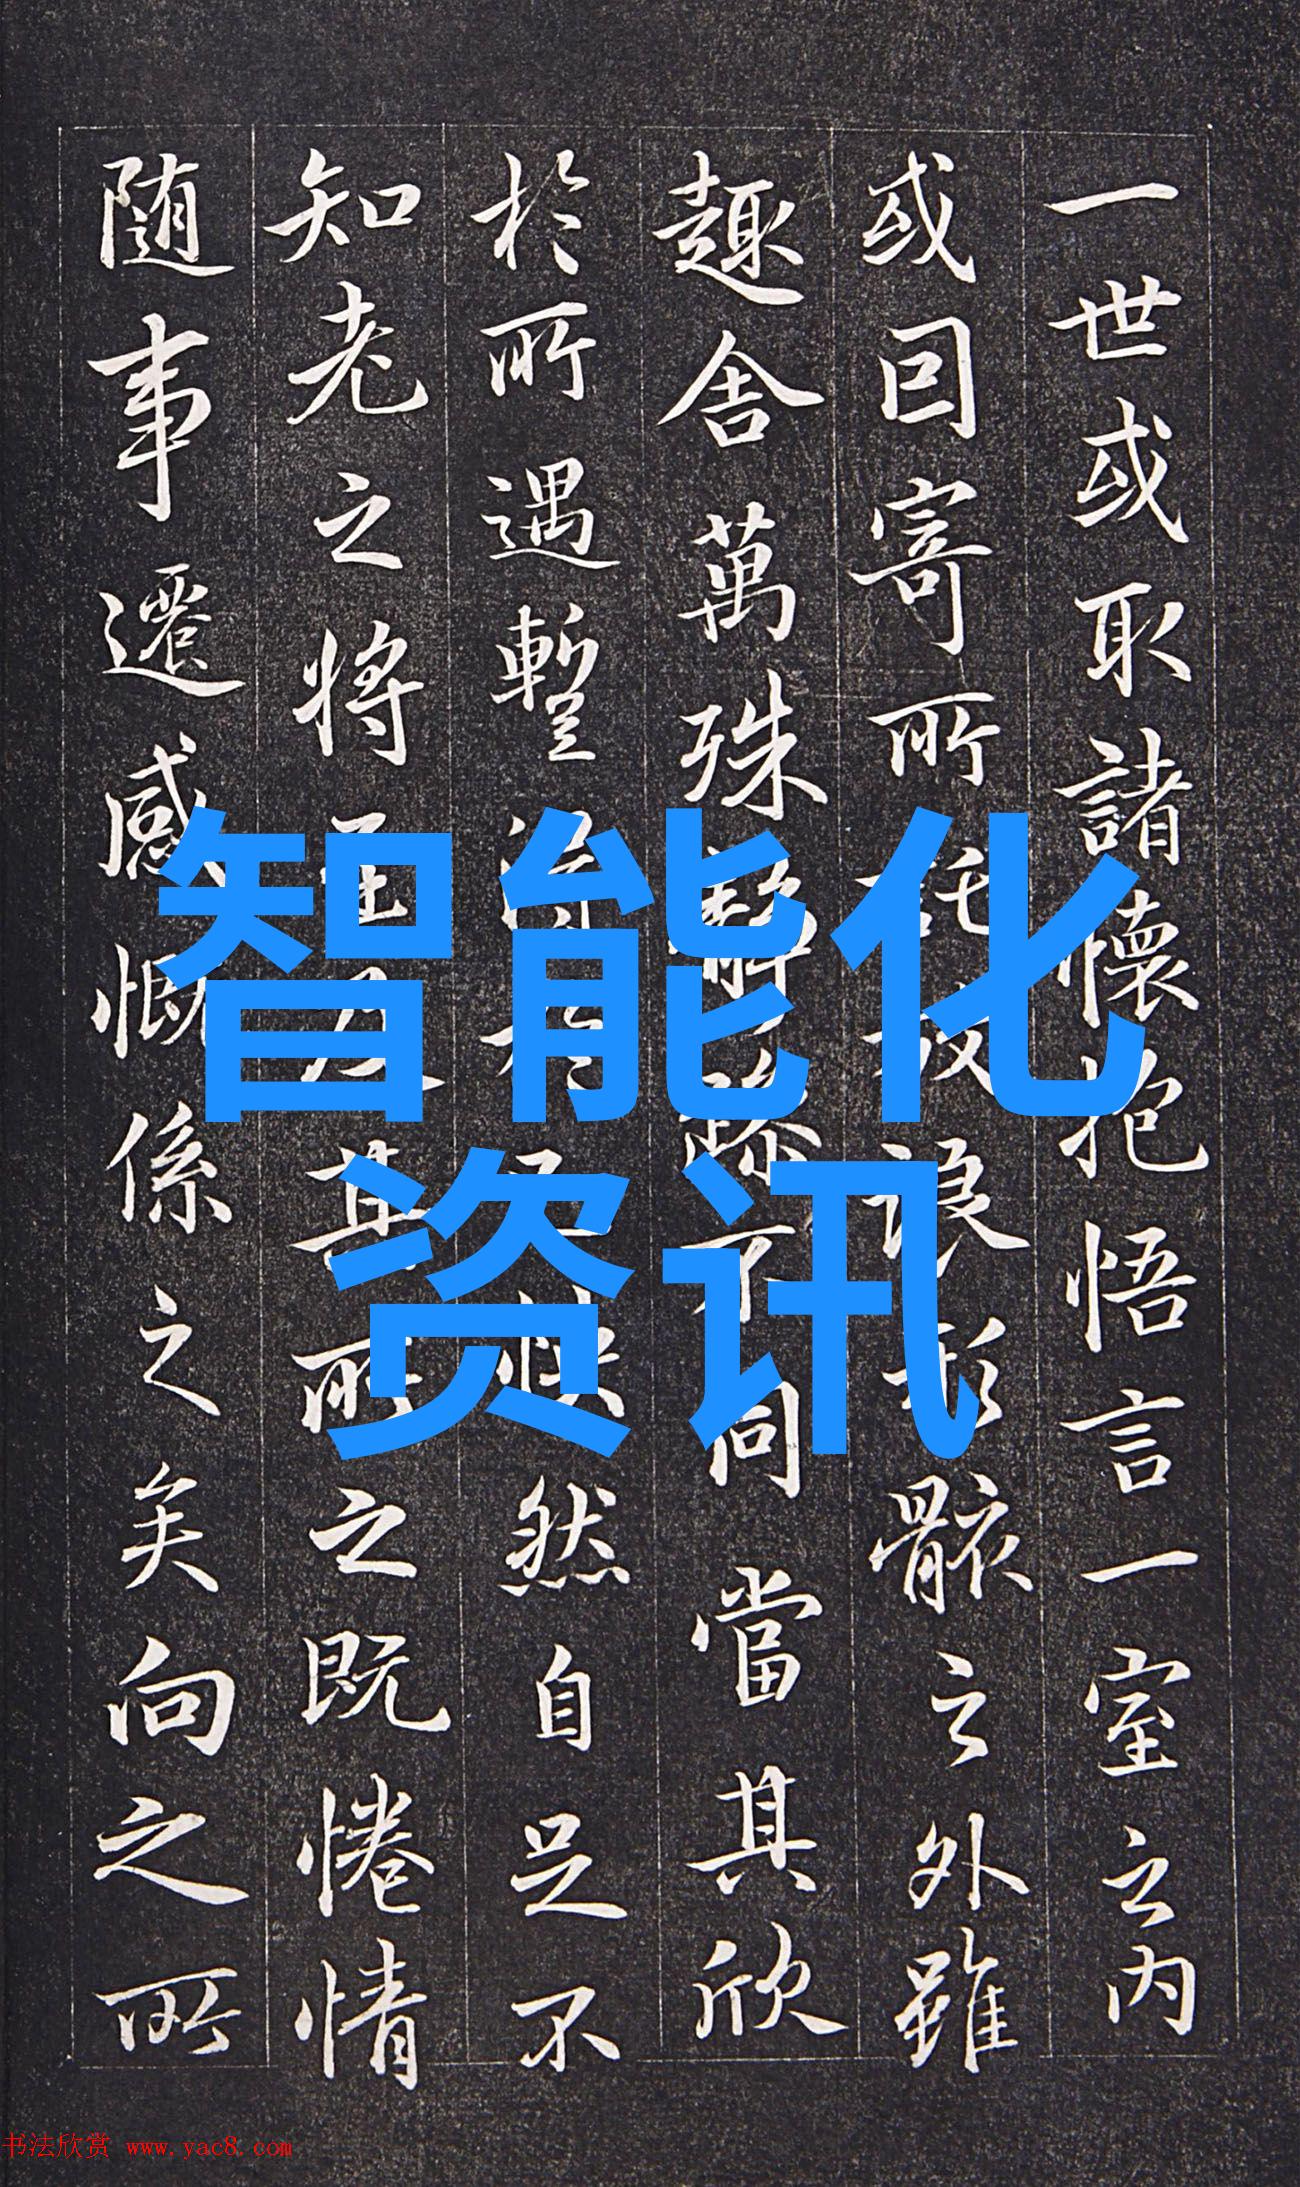 一世或取諸懷抱悟言一室之內
或因寄所託放浪形骸之外雖
趣舍萬殊靜躁不同當其欣
於所遇暫得於己快然自足不
知老之將至及其所之既惓情
随事遷感慨係之矣向之所
智能化
资讯
书法欣赏 www.yac8.com